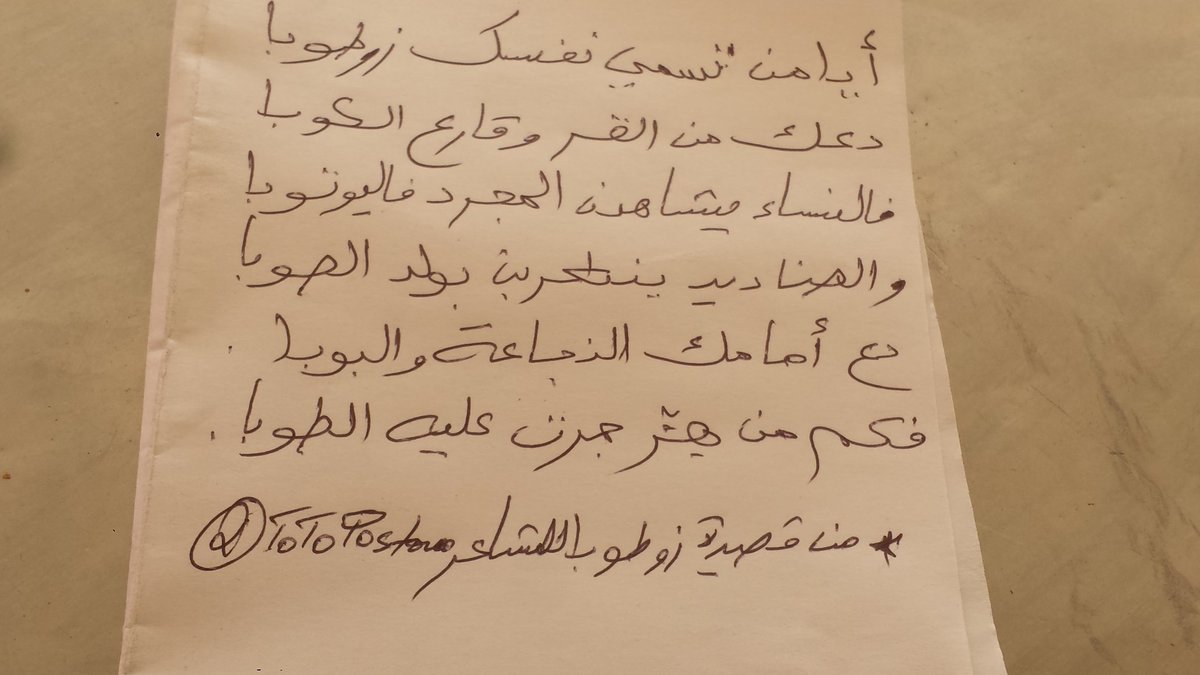 أيا من تسمي نفسك زوطوبا
دعك من القر وقارع الكوبا
فالنساء يشاهدن المجرد فاليوتوبا
والصناديد ينتظرن بولد الصوبا
دع أمامك الزجاعة والبوبا
فكم من هيثر جرت عليه الطوبا.
* من قصيدة زوطوبا للشاعر @ToToPostano